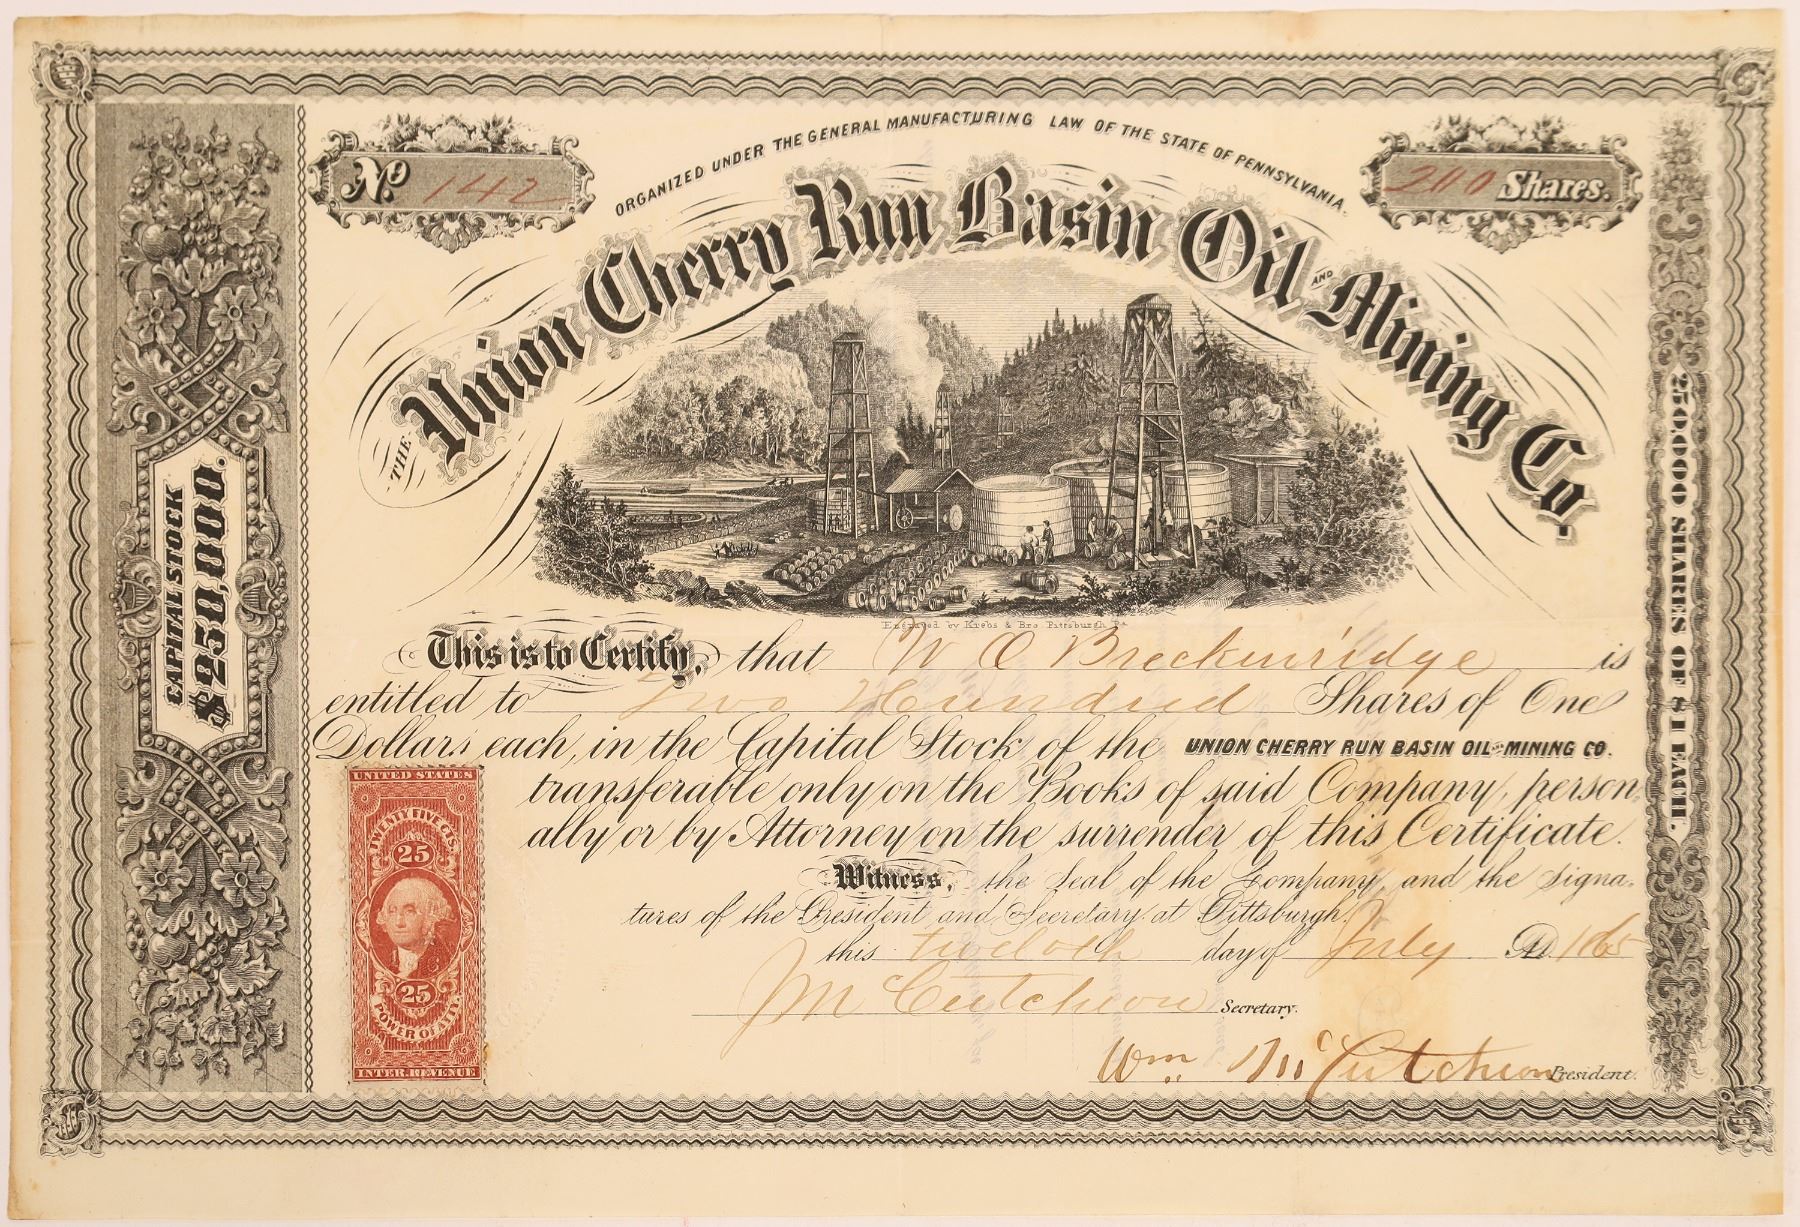 ORGANIZED UNDER THE GENERAL MANUFACTURING LAW OF THE STATE OF PENNSYLVANIA.
No 142
200 Shares.
THE Union Cherry Run Basin Oil AND Mining Co.
CAPITAL STOCK
$250,000.
250000 SHARES OF $1 EACH.
Engraved by Krebs & Bro Pittsburgh Pa
This is to Certify, that W O Breckenridge is
entitled to Two Hundred Shares of One
Dollars each, in the Capital Stock of the UNION CHERRY RUN BASIN OIL AND MINING CO.
transferable only on the Books of said Company, person,
ally or by Attorney on the surrender of this Certificate.
Witness, the Seal of the Company, and the Signa-
tures of the President and Secretary at Pittsburgh.
this twelvth day of July AD. 1865
J M Cutcheon Secretary.
Wm McCutcheon President.
UNITED STATES
TWENTY FIVE CTS.
25
25
POWER OF ATTY.
INTER. REVENUE